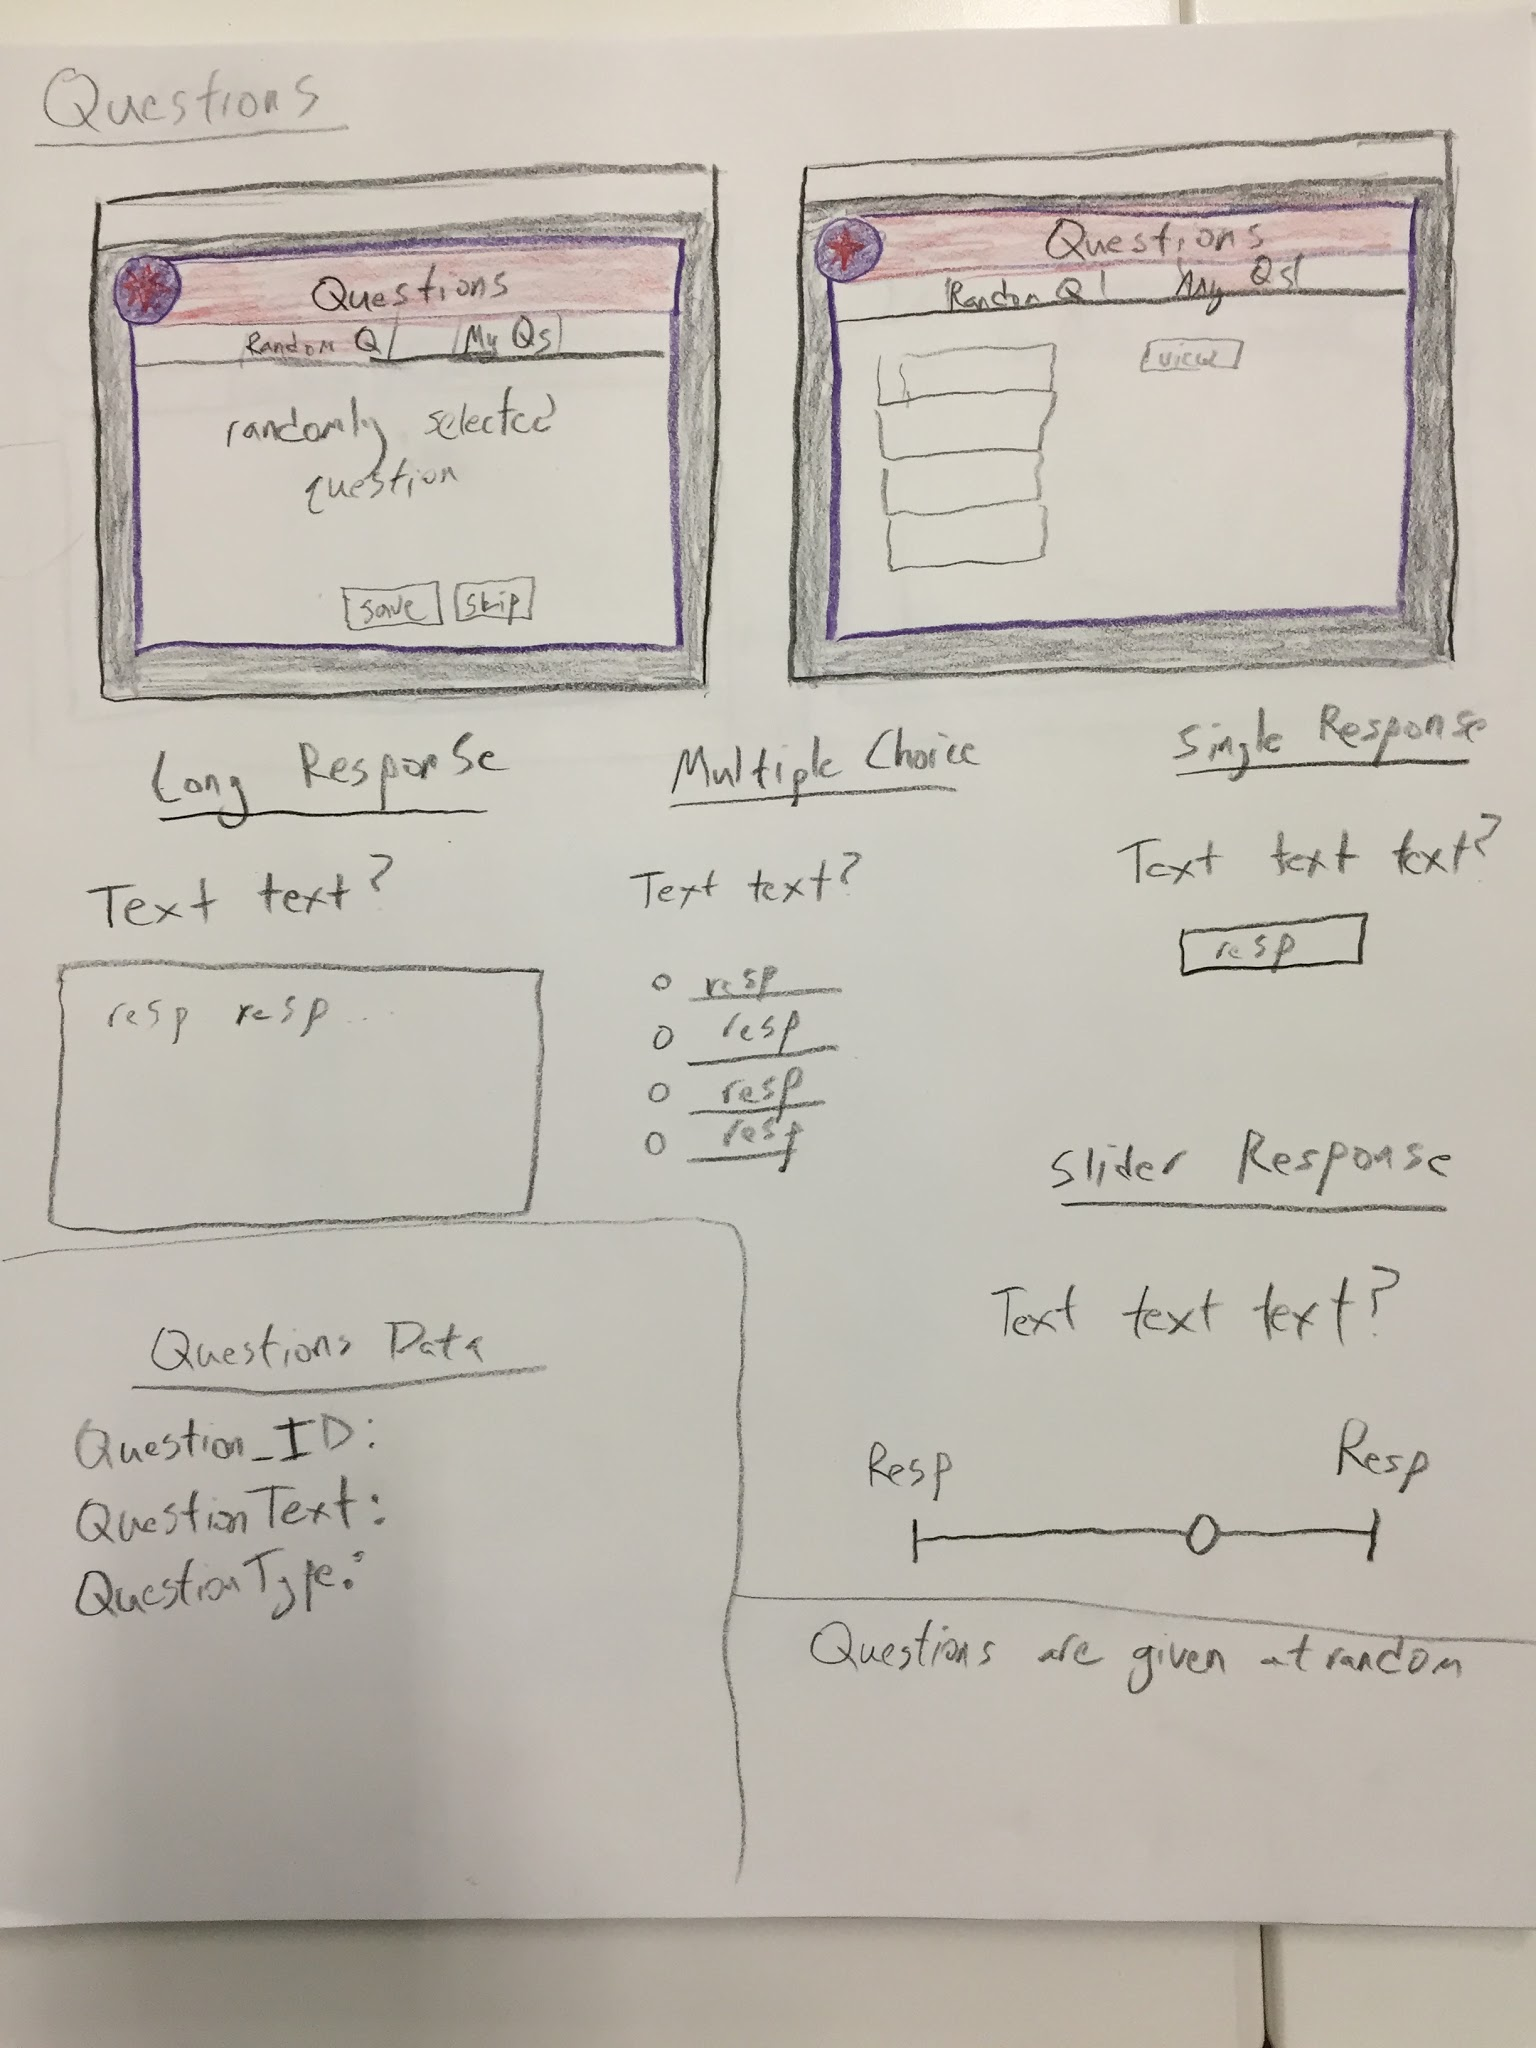 Questions
Questions
Random Q
My Qs
randomly selected
question
save
skip
Questions
Random Q
My Qs
view
Long Response
Text text?
resp resp...
Multiple Choice
Text text?
resp
resp
resp
resp
Single Response
Text text text?
resp
Slider Response
Text text text?
Resp
Resp
Questions Data
Question_ID:
QuestionText:
QuestionType:
Questions are given at random